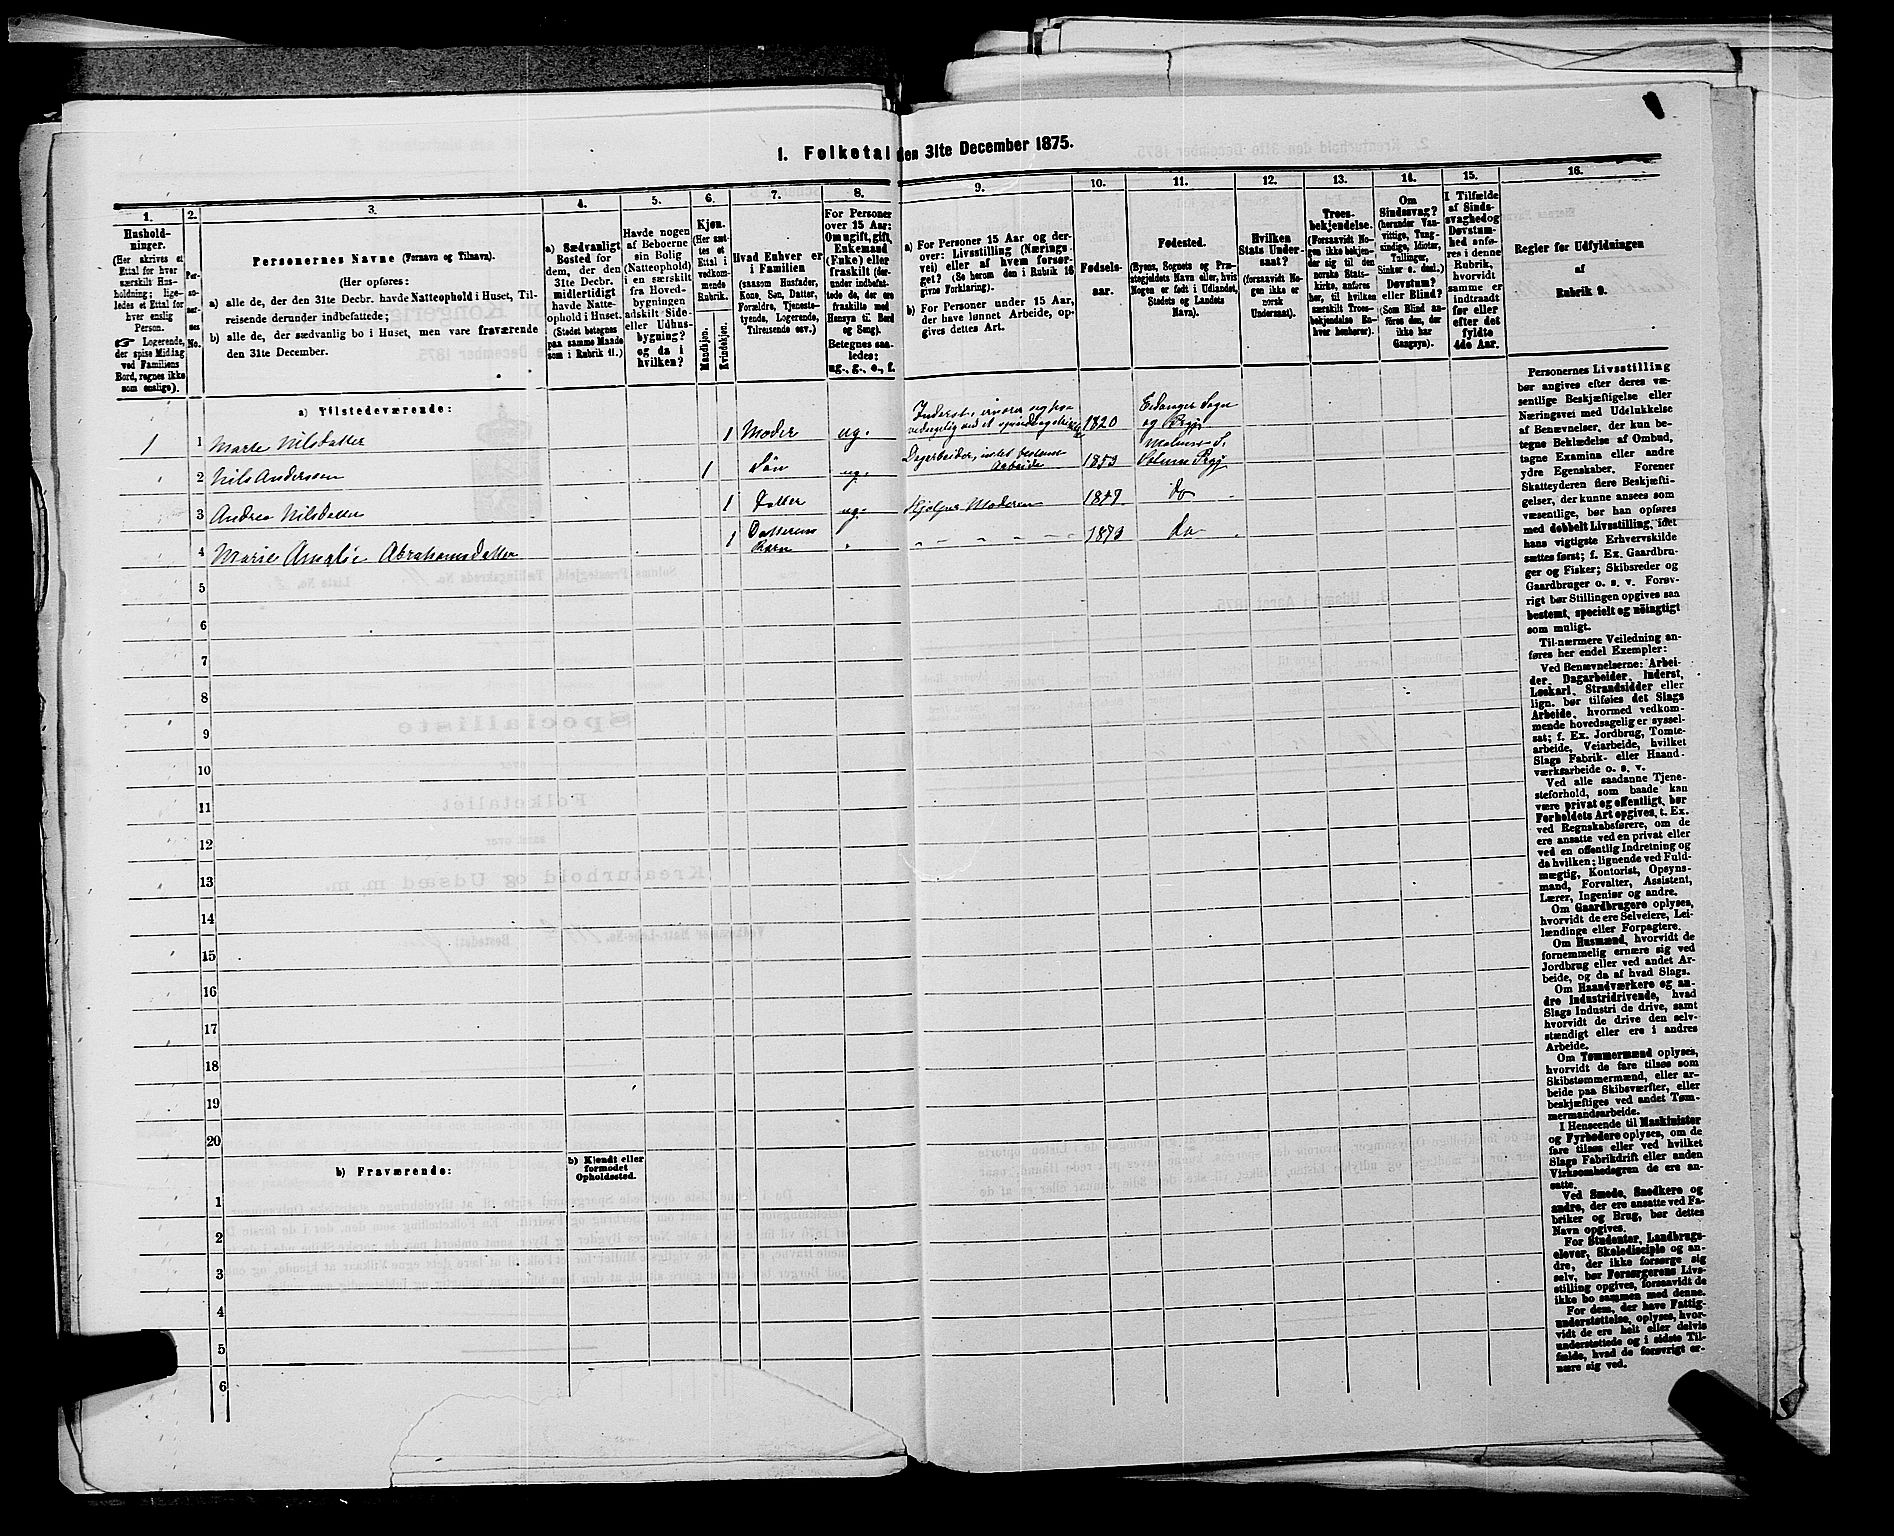 1. Folketal den 31te December 1875.
1.
2.
3.
4.
5.
6.
7.
8.
9.
10.
11.
12.
13.
14.
15.
16.
Hushold-
ninger.
(Her skrives et
Ettal for hver
særskilt Hus-
holdning; lige-
ledes et Ettal for
hver enslig
Person.
Logerende,
der spise Middag
ved Familiens
Bord, regnes ikke
som enslige).
Per-
so-
ner-
nes
No.
Personernes Navne (Fornavn og Tilnavn).
(Her opføres:
a) alle de, der den 31te Decbr. havde Natteophold i Huset, Til-
reisende derunder indbefattede;
b) alle de, der sædvanlig bo i Huset, men vare fraværende
den 31te December.
a) Sædvanligt
Bosted for
dem, der den
31te Decbr.
midlertidigt
havde Natte-
ophold i Huset.
(Stedet betegnes
paa samme Maade
som i Rubrik 11.)
Havde nogen
af Beboerne
sin Bolig
(Natteophold)
i en særskilt
fra Hoved-
bygningen
adskilt Side-
eller Udhus-
bygning?
og da i
hvilken?
Kjøn.
(Her sæt-
tes et
Ettal i
vedkom-
mende
Rubrik.
Mandkjøn.
Kvindekjøn.
Hvad Enhver er
i Familien
(saasom Husfader,
Kone, Søn, Datter,
Forældre, Tjeneste-
tyende, Logerende,
Tilreisende osv.)
For Personer
over 15 Aar:
Om ugift, gift,
Enkemand
(Enke) eller
fraskilt (der-
under indbefat-
tede de, der ere
fraskilte med
Hensyn til Bord
og Seng).
Betegnes saa-
ledes:
ug., g., e., f.
a) For Personer 15 Aar og der-
over: Livsstilling (Nærings-
vei) eller af hvem forsør-
get? (Se herom den i Rubrik 16
givne Forklaring).
b) For Personer under 15 Aar,
der have lønnet Arbeide, op-
gives dettes Art.
Fødsels-
aar.
Fødested.
(Byens, Sognets og Præ-
stegjeldets Navn eller, hvis
Nogen er født i Udlandet,
Stedets og Landets
Navn).
Hvilken
Stats Under-
saat?
(forsaavidt No-
gen ikke er
norsk
Undersaat).
Troes-
bekjendelse.
(Forsaavidt No-
gen ikke bekjen-
der sig til den
norske Stats-
kirke, anføres
her, til hvilken
særskilt Troes-
bekjendelse En-
hver henhører).
Om
Sindssvag?
(herunder Van-
vittige, Tung-
sindige, Idioter,
Tullinger,
Sinker o. desl.).
Døvstum?
eller Blind?
(Som Blind an-
føres den, der
ikke har
Gangsyn).
I Tilfælde
af Sinds-
svaghed og
Døvstum-
hed anfø-
res i denne
Rubrik,
hvorvidt
samme er
indtraadt
før eller
efter det
fyldte
4de Aar.
Regler for Udfyldningen
af
Rubrik 9.
a) Tilstedeværende:
1 1 Marte Nilsdatter 1 Moder ug. 1820 Eidanger Sogn og Prgj
2 Nils Anderssen 1 Søn ug. Dagarbeider, intet bestemt Arbeide 1853
3 Andrea Nilsdatter 1 Datter ug. Hjælper Moderen do
4 Marie Amalie Abrahamsdatter 1 Datterens Barn 1873 do
5
6
7
8
9
10
11
12
13
14
15
16
17
18
19
20
b) Fraværende:
b) Kjendt eller
formodet
Opholdssted.
1
2
3
4
5
6
Personernes Livsstilling
bør angives efter deres væ-
sentlige Beskjæftigelse eller
Næringsvei med Udelukkelse
af Benævnelser, der kun be-
tegne Beklædelse af Ombud,
tagne Examina eller andre
ydre Egenskaber. Forener
Skatteyderen flere Beskjæfti-
gelser, der kunne ansees som
væsentlige, bør han opføres
med dobbelt Livsstilling, idet
hans vigtigste Erhvervskilde
sættes først; f. Ex. Gaardbru-
ger og Fisker; Skibsreder og
Gaardbruger o. s. v. Forøv-
rigt bør Stillingen opgives saa
bestemt, specielt og nöiagtigt
som muligt.
Til nærmere Veiledning an-
føres her endel Exempler:
Ved Benævnelserne: Arbei-
der, Dagarbeider, Inderst,
Løskarl, Strandsidder eller
lign. bør tilføies det Slags
Arbeide, hvormed vedkom-
mende hovedsagelig er syssel-
sat; f. Ex. Jordbrug, Tomte-
arbeide, Veiarbeide, hvilket
Slags Fabrik- eller Haand-
værksarbeide o. s. v.
Ved alle saadanne Tjene-
steforhold, som baade kan
være privat og offentligt, bør
Forholdets Art opgives, t. Ex.
ved Regnskabsførere, om de
ere ansatte ved en privat eller
ved en offentlig Indretning og
da hvilken; lignende ved Fuld-
mægtig, Kontorist, Opsyns-
mand, Forvalter, Assistent,
Lærer, Ingeniør og andre.
Om Gaardbrugere oplyses,
hvorvidt de ere Selveiere, Lei-
lændinge eller Forpagtere.
Om Husmænd, hvorvidt de
fornemmelig ernære sig ved
Jordbrug eller ved andet Ar-
beide, og da af hvad Slags.
Om Haandværkere og an-
dre Industridrivende, hvad
Slags Industri de drive, samt
hvorvidt de drive den selv-
stændigt eller ere i andres
Arbeide.
Om Tømmermænd oplyses,
hvorvidt de fare tilsøs som
Skibstømmermænd, eller ar-
beide paa Skibsværfter, eller
beskjæftiges ved andet Tøm-
mermandsarbeide.
I Henseende til Maskinister
og Fyrbødere oplyses, om de
fare tilsøs eller ved hvilket
Slags Fabrikdrift eller anden
Virksomhedsgren de ere an-
satte.
Ved Smede, Snedkere og
andre, der ere ansatte ved Fa-
briker og Brug, bør dettes
Navn opgives.
For Studenter, Landbrugs-
elever, Skoledisciple og an-
dre, der ikke forsørge sig
selv, bør Forsørgerens Livs-
stilling opgives, forsaavidt de
ikke bo sammen med denne.
For dem, der have Fattig-
understøttelse, oplyses, hvor-
vidt de ere helt eller delvis
understøttede og i sidste Til-
fælde, hvad de forøvrigt er-
nære sig ved.